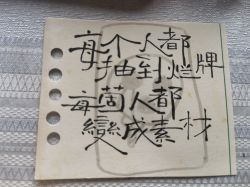 每个人都
抽到烂牌
每箇人都
變成素材